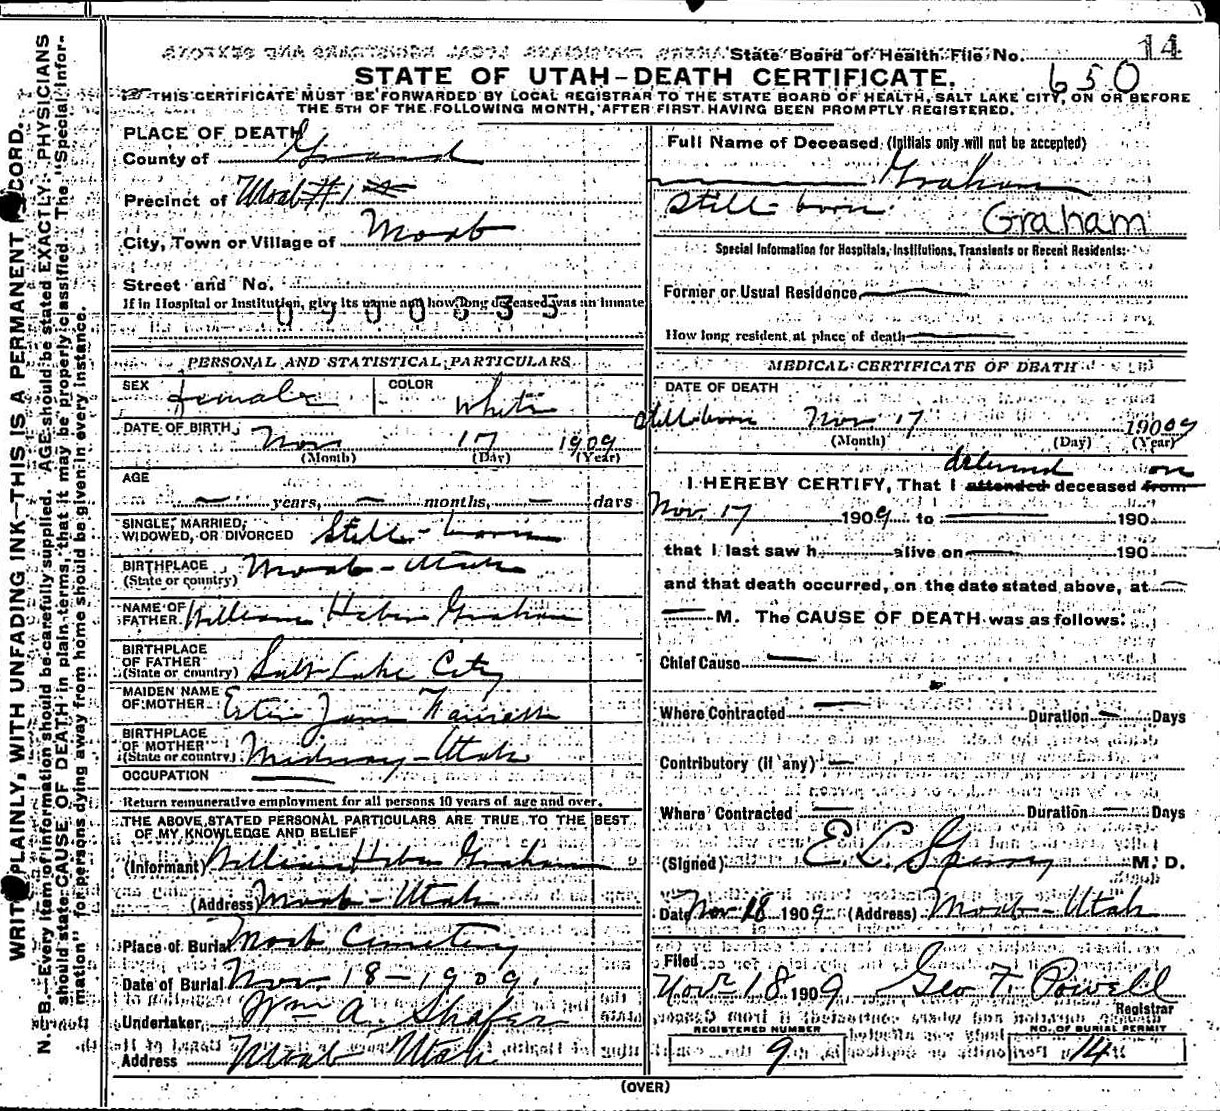 14
State Board of Health File No.
650
STATE OF UTAH-DEATH CERTIFICATE.
THIS CERTIFICATE MUST BE FORWARDED BY LOCAL REGISTRAR TO THE STATE BOARD OF HEALTH, SALT LAKE CITY, ON OR BEFORE
THE 5TH OF THE FOLLOWING MONTH, AFTER FIRST HAVING BEEN PROMPTLY REGISTERED.
WRITE PLAINLY, WITH UNFADING INK—THIS IS A PERMANENT RECORD.
N. B.—Every item of information should be carefully supplied. AGE should be stated EXACTLY. PHYSICIANS
should state CAUSE OF DEATH in plain terms, that it may be properly classified. The "Special Infor-
mation" for persons dying away from home should be given in every instance.
PLACE OF DEATH
County of Grand
Precinct of Moab #1
City, Town or Village of Moab
Street and No.
If in Hospital or Institution, give its name and how long deceased was an inmate
0900635
PERSONAL AND STATISTICAL PARTICULARS
SEX Female COLOR White
DATE OF BIRTH Nov 17 1909
(Month) (Day) (Year)
AGE
— years, — months, — days
SINGLE, MARRIED,
WIDOWED, OR DIVORCED Still-born
BIRTHPLACE
(State or country) Moab-Utah
NAME OF
FATHER William Heber Graham
BIRTHPLACE
OF FATHER
(State or country) Salt Lake City
MAIDEN NAME
OF MOTHER Jane
BIRTHPLACE
OF MOTHER
(State or country) Midway-Utah
OCCUPATION —
Return remunerative employment for all persons 10 years of age and over.
THE ABOVE STATED PERSONAL PARTICULARS ARE TRUE TO THE BEST
OF MY KNOWLEDGE AND BELIEF
(Informant) William Heber Graham
(Address) Moab-Utah
Place of Burial Moab Cemetery
Date of Burial Nov. 18-1909.
Undertaker Wm A. Shafer
Address Moab Utah
Full Name of Deceased (Initials only will not be accepted)
— Graham
Still-born Graham
Special Information for Hospitals, Institutions, Transients or Recent Residents:
Former or Usual Residence —
How long resident at place of death —
MEDICAL CERTIFICATE OF DEATH
DATE OF DEATH
Still-born Nov 17 1909
(Month) (Day) (Year)
delivered on
I HEREBY CERTIFY, That I attended deceased from
Nov. 17 1909 to — 190
that I last saw h alive on — 190
and that death occurred, on the date stated above, at —
— M. The CAUSE OF DEATH was as follows:
Chief Cause —
Where Contracted — Duration — Days
Contributory (if any) —
Where Contracted — Duration — Days
(Signed) E. L. M. D.
Date Nov 18 1909 (Address) Moab-Utah
Filed
Nov 18 1909 Geo F. Powell
Registrar
REGISTERED NUMBER NO. OF BURIAL PERMIT
9 14
(OVER)